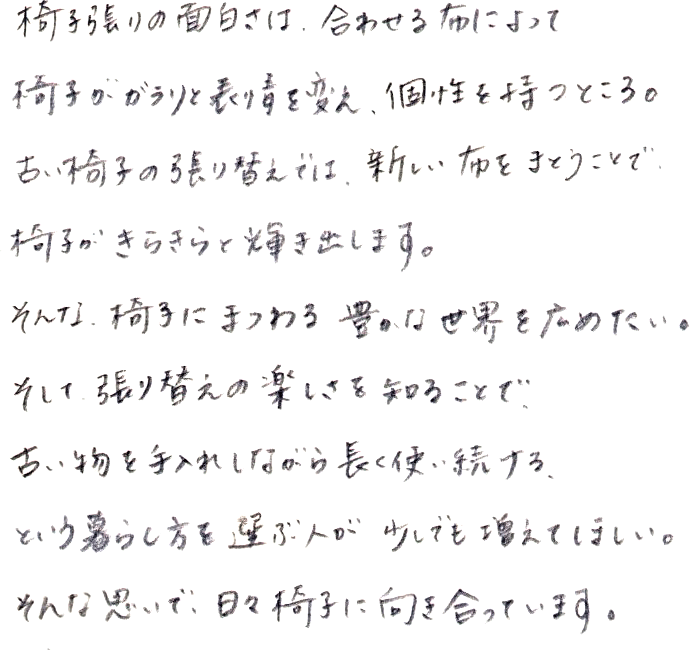 椅子張りの面白さは、合わせる布によって
椅子がガラリと表情を変え、個性を持つところ。
古い椅子の張り替えでは、新しい布をまとうことで、
椅子がきらきらと輝き出します。
そんな、椅子にまつわる豊かな世界を広めたい。
そして、張り替えの楽しさを知ることで、
古い物を手入れしながら長く使い続ける、
という暮らし方を選ぶ人が少しでも増えてほしい。
そんな思いで、日々椅子に向き合っています。